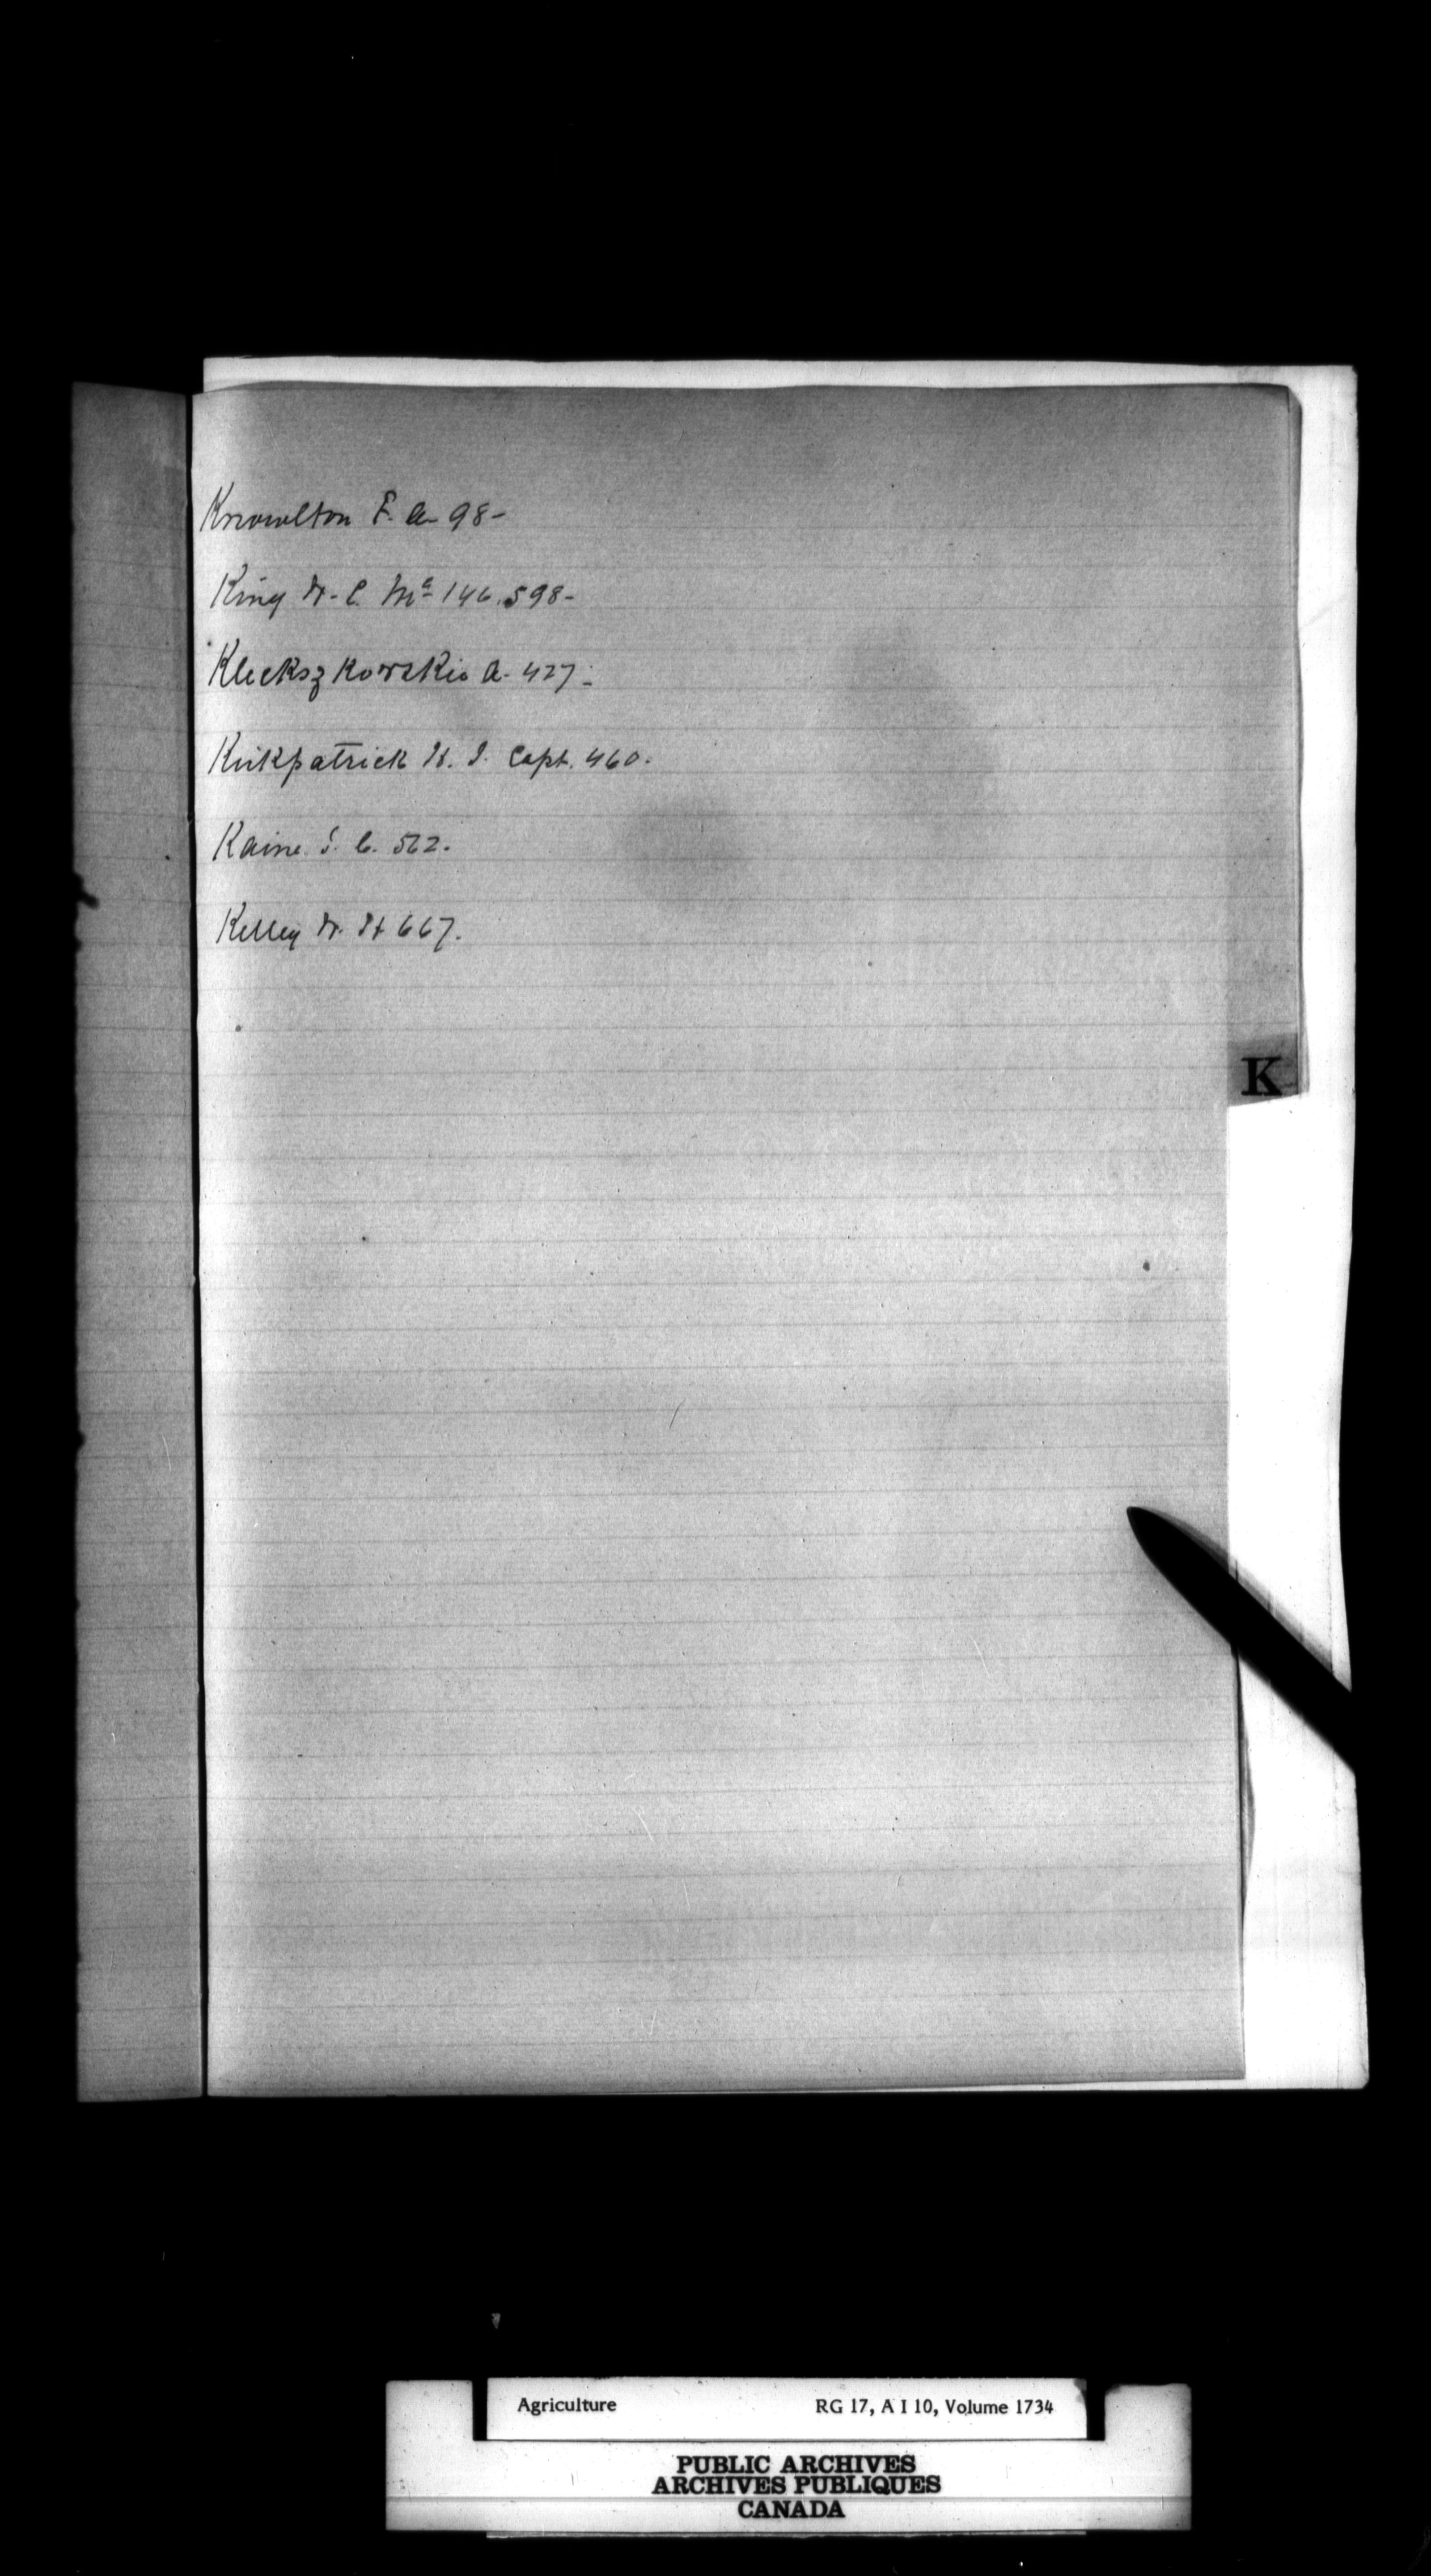 Knowlton F. A - 98 -
King W. C. Ma 146. 598 -
Kleckszkowzkio A. 427 -
Kirkpatrick H. J. Capt. 460.
Kaine J. C. 562.
Kelley W. H 667.
K
Agriculture RG 17, A I 10, Volume 1734
PUBLIC ARCHIVES
ARCHIVES PUBLIQUES
CANADA